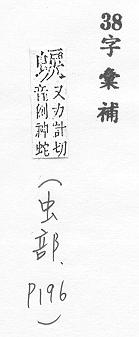 38字彙補
又力計切
音例神蛇
(虫部、P196)